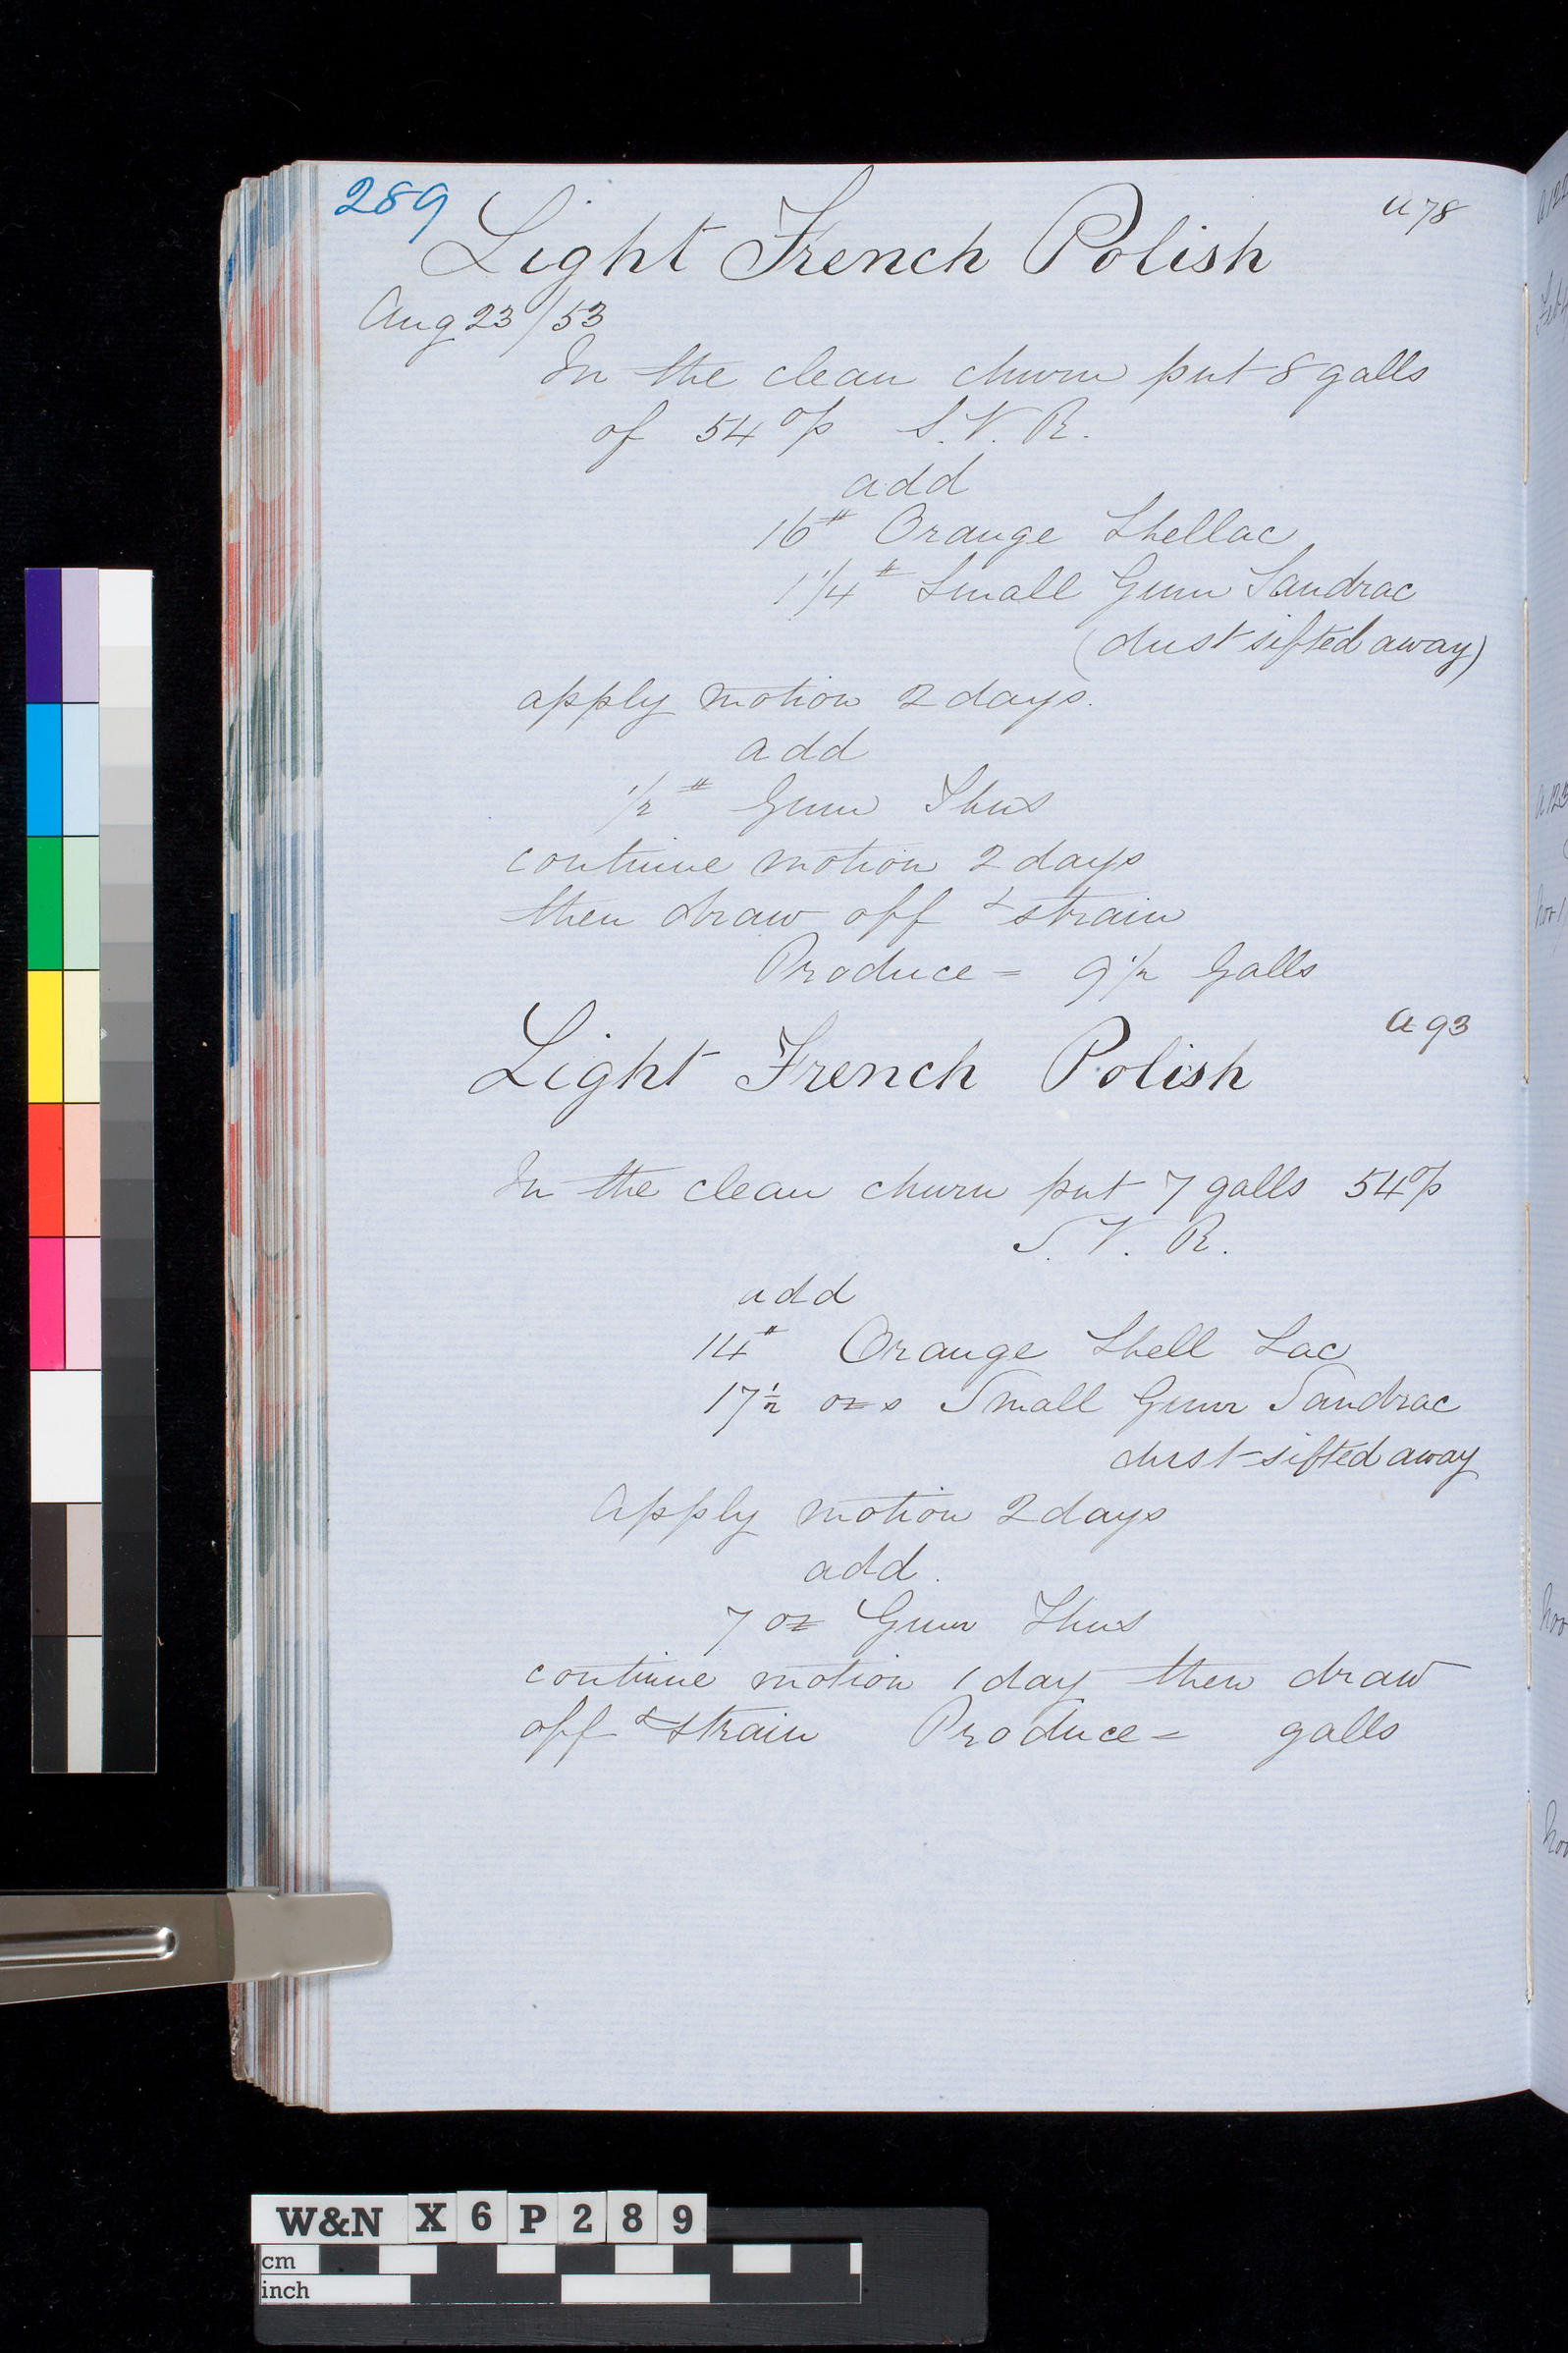 289
a 78
Light French Polish
Aug 23/53
In the clean churn put 8 galls
of 54 o/p S.V.R.
add
16# Orange Shellac
1 1/4# Small Gum Sandrac
(dust sifted away)
apply motion 2 days.
add
1/2# Gum Thus
continue motion 2 days
then draw off & strain
Produce = 9 1/2 Galls
a 93
Light French Polish
In the clean churn put 7 galls 54 o/p
S.V.R.
add
14# Orange Shell Lac
17 1/2 ozs Small Gum Sandrac
dust sifted away
Apply motion 2 days
add.
7 oz Gum Thus
continue motion 1 day then draw
off & strain Produce = galls
W&N X6P289
cm
inch